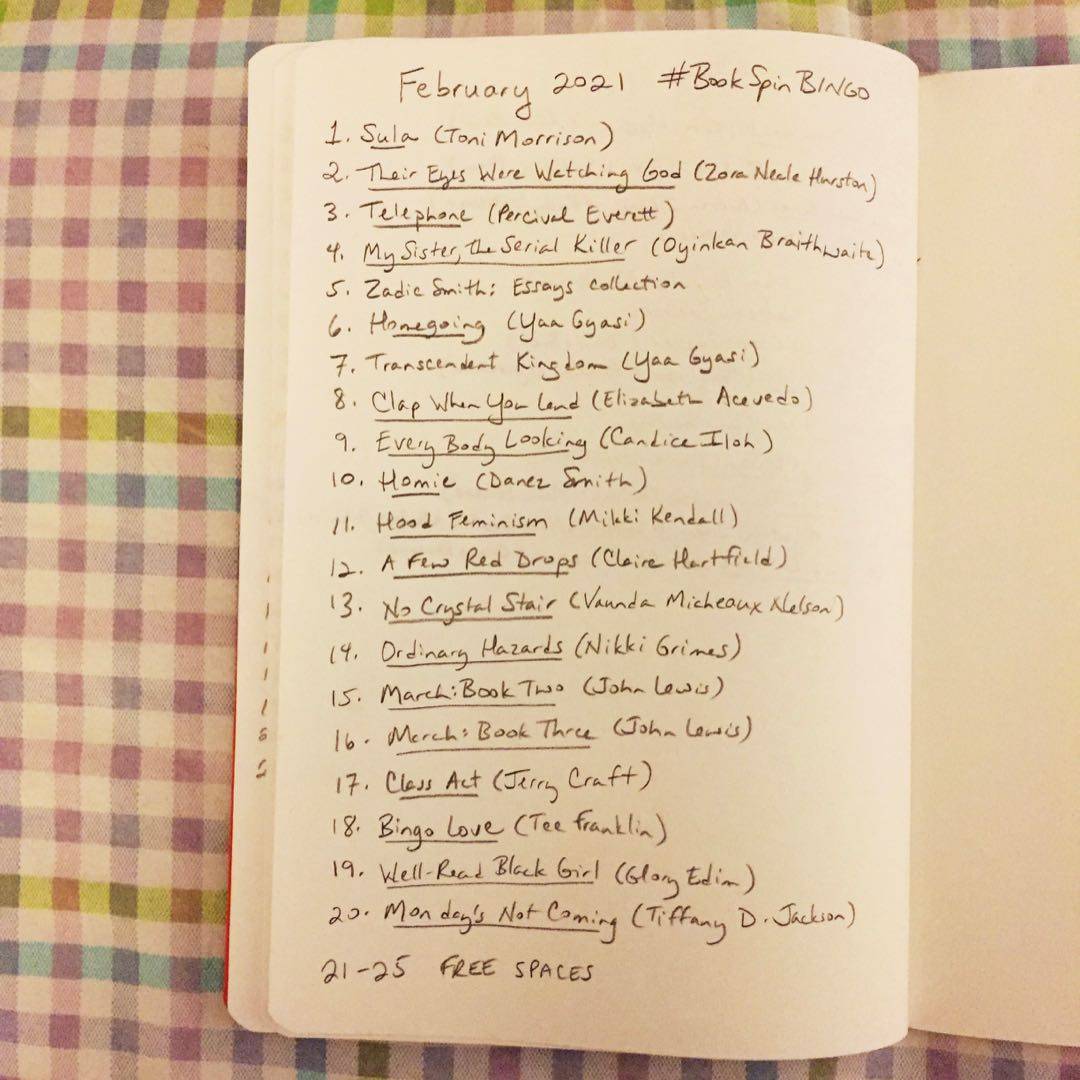 February 2021 #BookSpinBINGO
1. Sula (Toni Morrison)
2. Their Eyes Were Watching God (Zora Neale Hurston)
3. Telephone (Percival Everett)
4. My Sister, the Serial Killer (Oyinkan Braithwaite)
5. Zadie Smith: Essays collection
6. Homegoing (Yaa Gyasi)
7. Transcendent Kingdom (Yaa Gyasi)
8. Clap When You Land (Elizabeth Acevedo)
9. Every Body Looking (Candice Iloh)
10. Homie (Danez Smith)
11. Hood Feminism (Mikki Kendall)
12. A Few Red Drops (Claire Hartfield)
13. No Crystal Stair (Vaunda Micheaux Nelson)
14. Ordinary Hazards (Nikki Grimes)
15. March: Book Two (John Lewis)
16. March: Book Three (John Lewis)
17. Class Act (Jerry Craft)
18. Bingo Love (Tee Franklin)
19. Well-Read Black Girl (Glory Edim)
20. Monday's Not Coming (Tiffany D. Jackson)
21-25 FREE SPACES